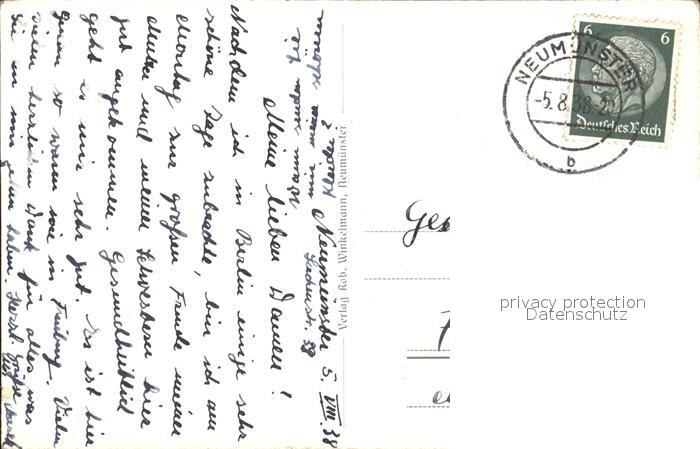 Neumünster 5. VIII. 38
Meine lieben Damen!
Nachdem ich in Berlin einige sehr
schöne Tage zubrachte, bin ich am
Montag zur großen Freude meiner
Mutter und meiner Schwestern hier
gut angekommen. Gesundheitlich
geht es mir sehr gut. Es ist hier
genau so warm wie in Freibg. Vielen
vielen herzlichen Dank für alles was
Sie an mir getan haben. Herzl. Grüße
Verlag Rob. Winkelmann, Neumünster
NEUMÜNSTER
-5.8.38
b
6 6
Deutsches Reich
privacy protection
Datenschutz